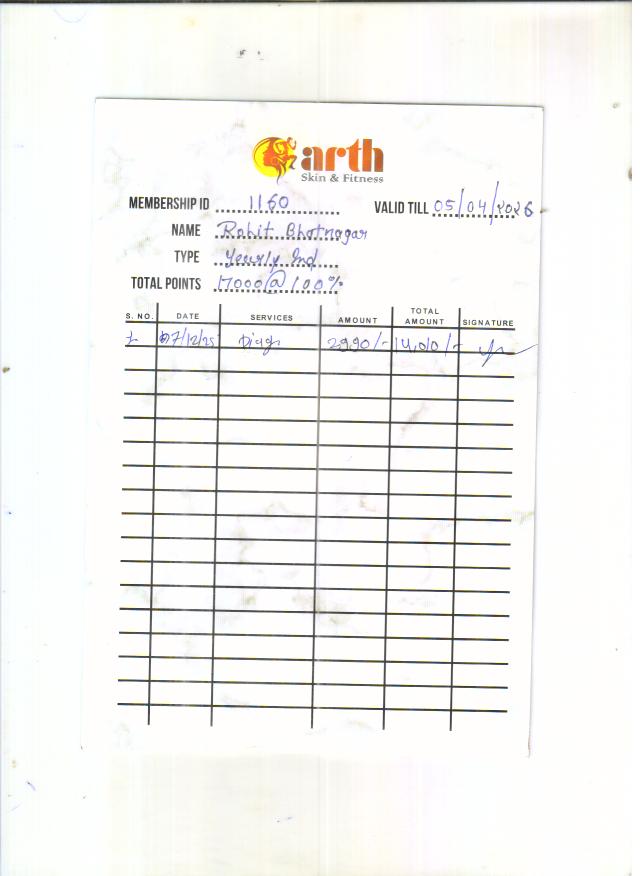 arth
Skin & Fitness
MEMBERSHIP ID 1160 VALID TILL 05/04/2026
NAME Rohit Bhatnagar
TYPE Yearly Ind
TOTAL POINTS 17000@100%
S. NO. DATE SERVICES AMOUNT TOTAL AMOUNT SIGNATURE
1 07/12/25 2990/- 14,010/-